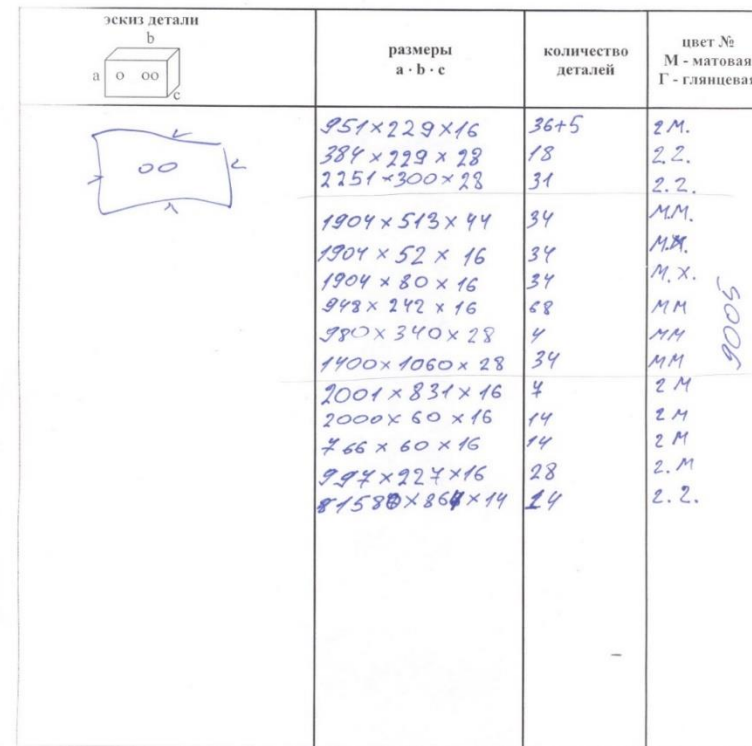 эскиз детали
b
a
c
размеры
a · b · c
количество
деталей
цвет №
М - матовая
Г - глянцевая
951×229×16 36+5 г М.
384×229×28 18 г.г.
2251×300×28 31 г.г.
1904×513×44 34 М.М.
1904×52×16 34 М.М.
1904×80×16 34 М.
948×242×16 68 ММ
980×340×28 4 ММ
1400×1060×28 34 ММ
9005
2001×831×16 7 г М
2000×60×16 14 г М
766×60×16 14 г М
997×227×16 28 г.М
14 г.г.